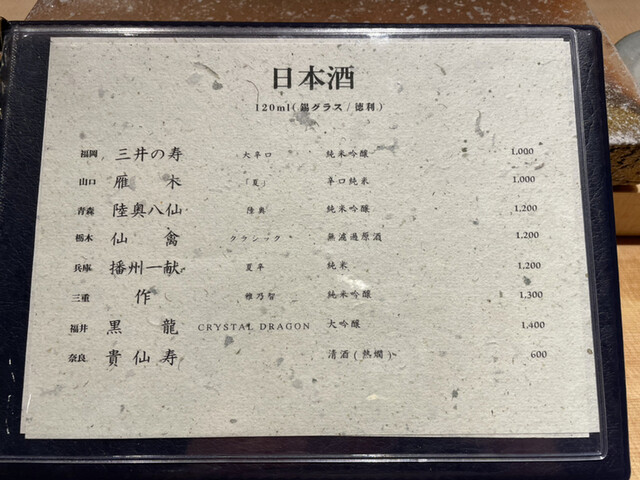 日本酒
120ml(錫グラス/徳利)
福岡 三井の寿 大辛口 純米吟醸 1,000
山口 雁木 「夏」 辛口純米 1,000
青森 陸奥八仙 陸奥 純米吟醸 1,200
栃木 仙禽 クラシック 無濾過原酒 1,200
兵庫 播州一献 夏辛 純米 1,200
三重 作 雅乃智 純米吟醸 1,300
福井 黒龍 CRYSTAL DRAGON 大吟醸 1,400
奈良 貴仙寿 清酒(熱燗) 600